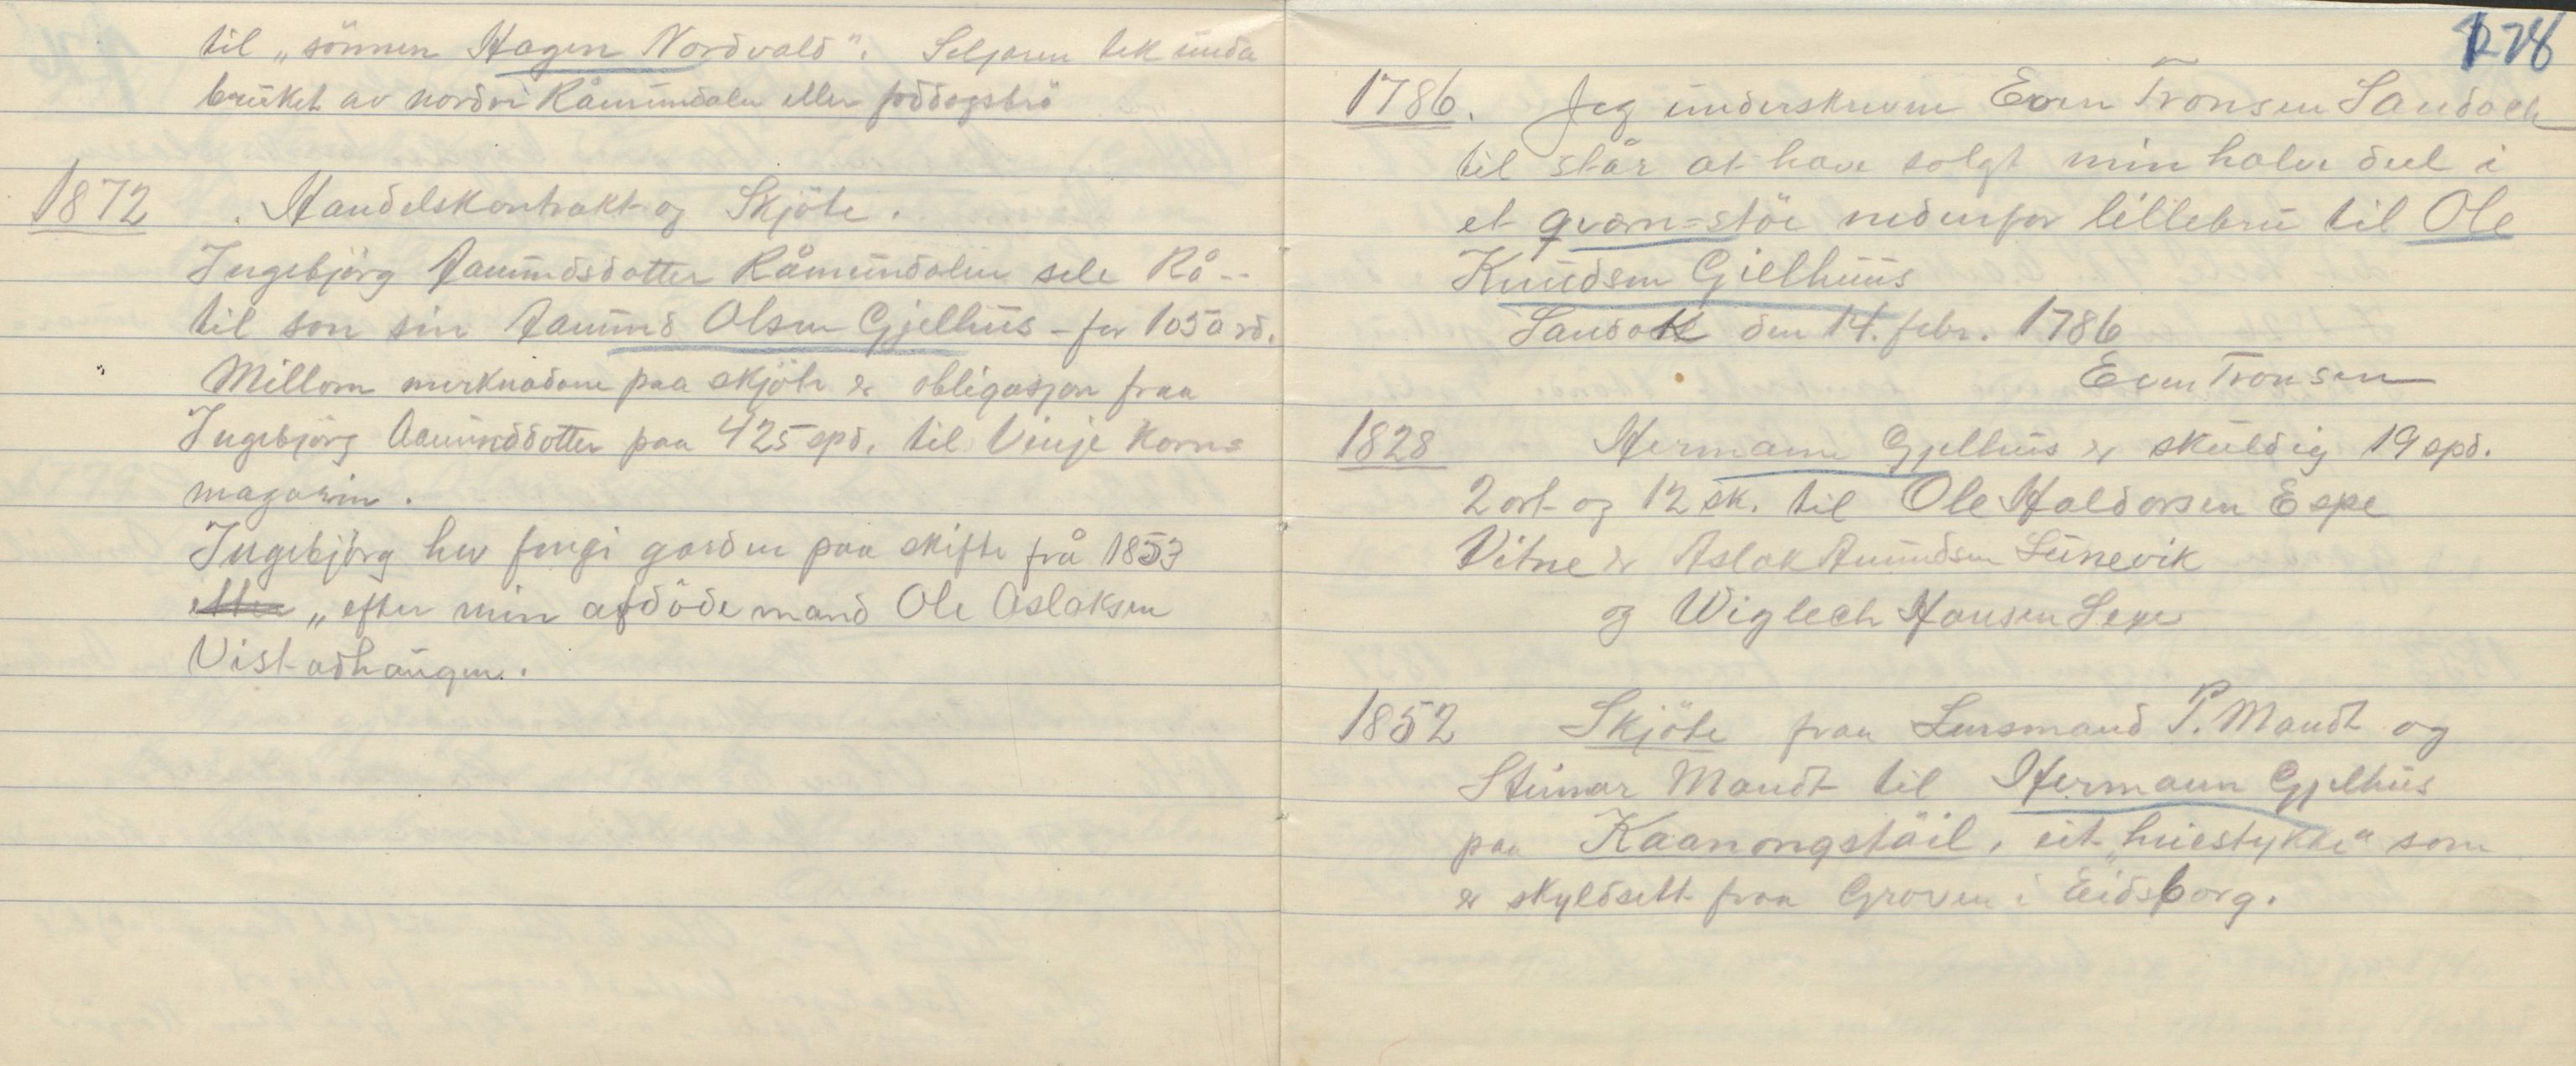 til „sönnen Hagen Nordvald". Seljaren tek unda
bruket av nordri Råmundalen eller föddogsbrö
1872 . Handelskontrakt og Skjöte.
Ingebjörg Aamundsdotter Råmundalen sele Rå--
til son sin Aamund Olsen Gjelhus - for 1050 rd.
Millom merknadane paa skjöte er obligasjon fraa
Ingebjörg Aamunddotter paa 425 spd. til Vinje Korn=
magasin.
Ingebjörg hev fengi garden paa skifte frå 1853
„efter min afdöde mand Ole Aslaksen
Vistadhaugen.
278
1786. Jeg underskrevne Even Tronsen Saudock
til står at have solgt min halve deel i
et qværn=stöe nedenfor lillebru til Ole
Knudsen Gielhuus
Saudok den 14. febr. 1786
Even Tronsen
1828 Hermann Gjelhus er skuldig 19 spd.
2 ort og 12 sk. til Ole Haldorsen Espe
Vitne er Aslak Amundsen Lunevik
og Wiglech Hansen Sexe
1852 Skjöte fraa Lensmand P. Mandt og
Steinar Mandt til Hermann Gjelhus
paa Kaanongstäil, eit „huestykke" som
er skyldsett fraa Groven i Eidsborg.